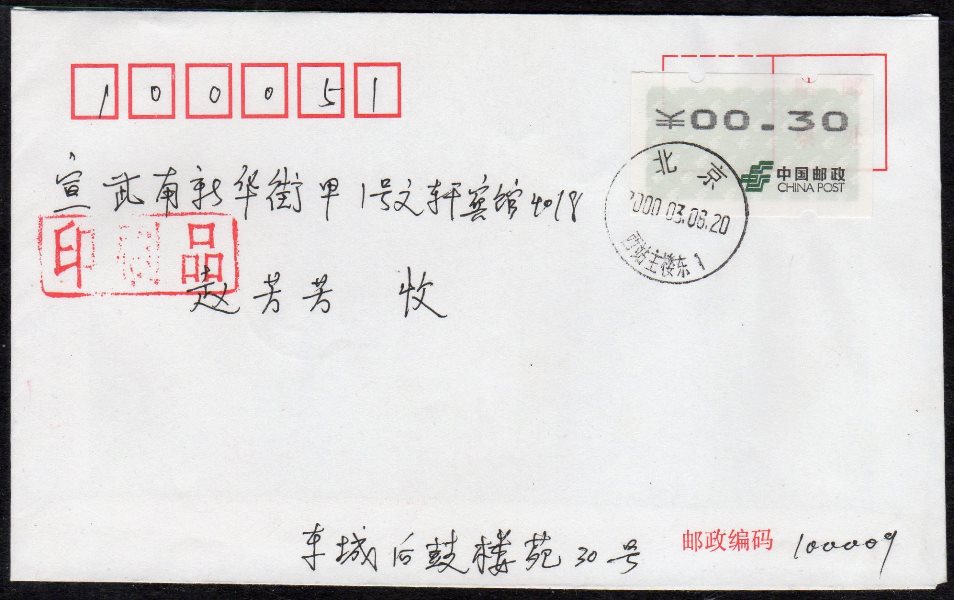 100051
¥00.30
中国邮政
CHINA POST
北京
2000.03.06.20
西站主楼东1
宣武南新华街甲1号文轩宾馆4018
印刷品
赵芳芳 收
东城后鼓楼苑30号
邮政编码 100009